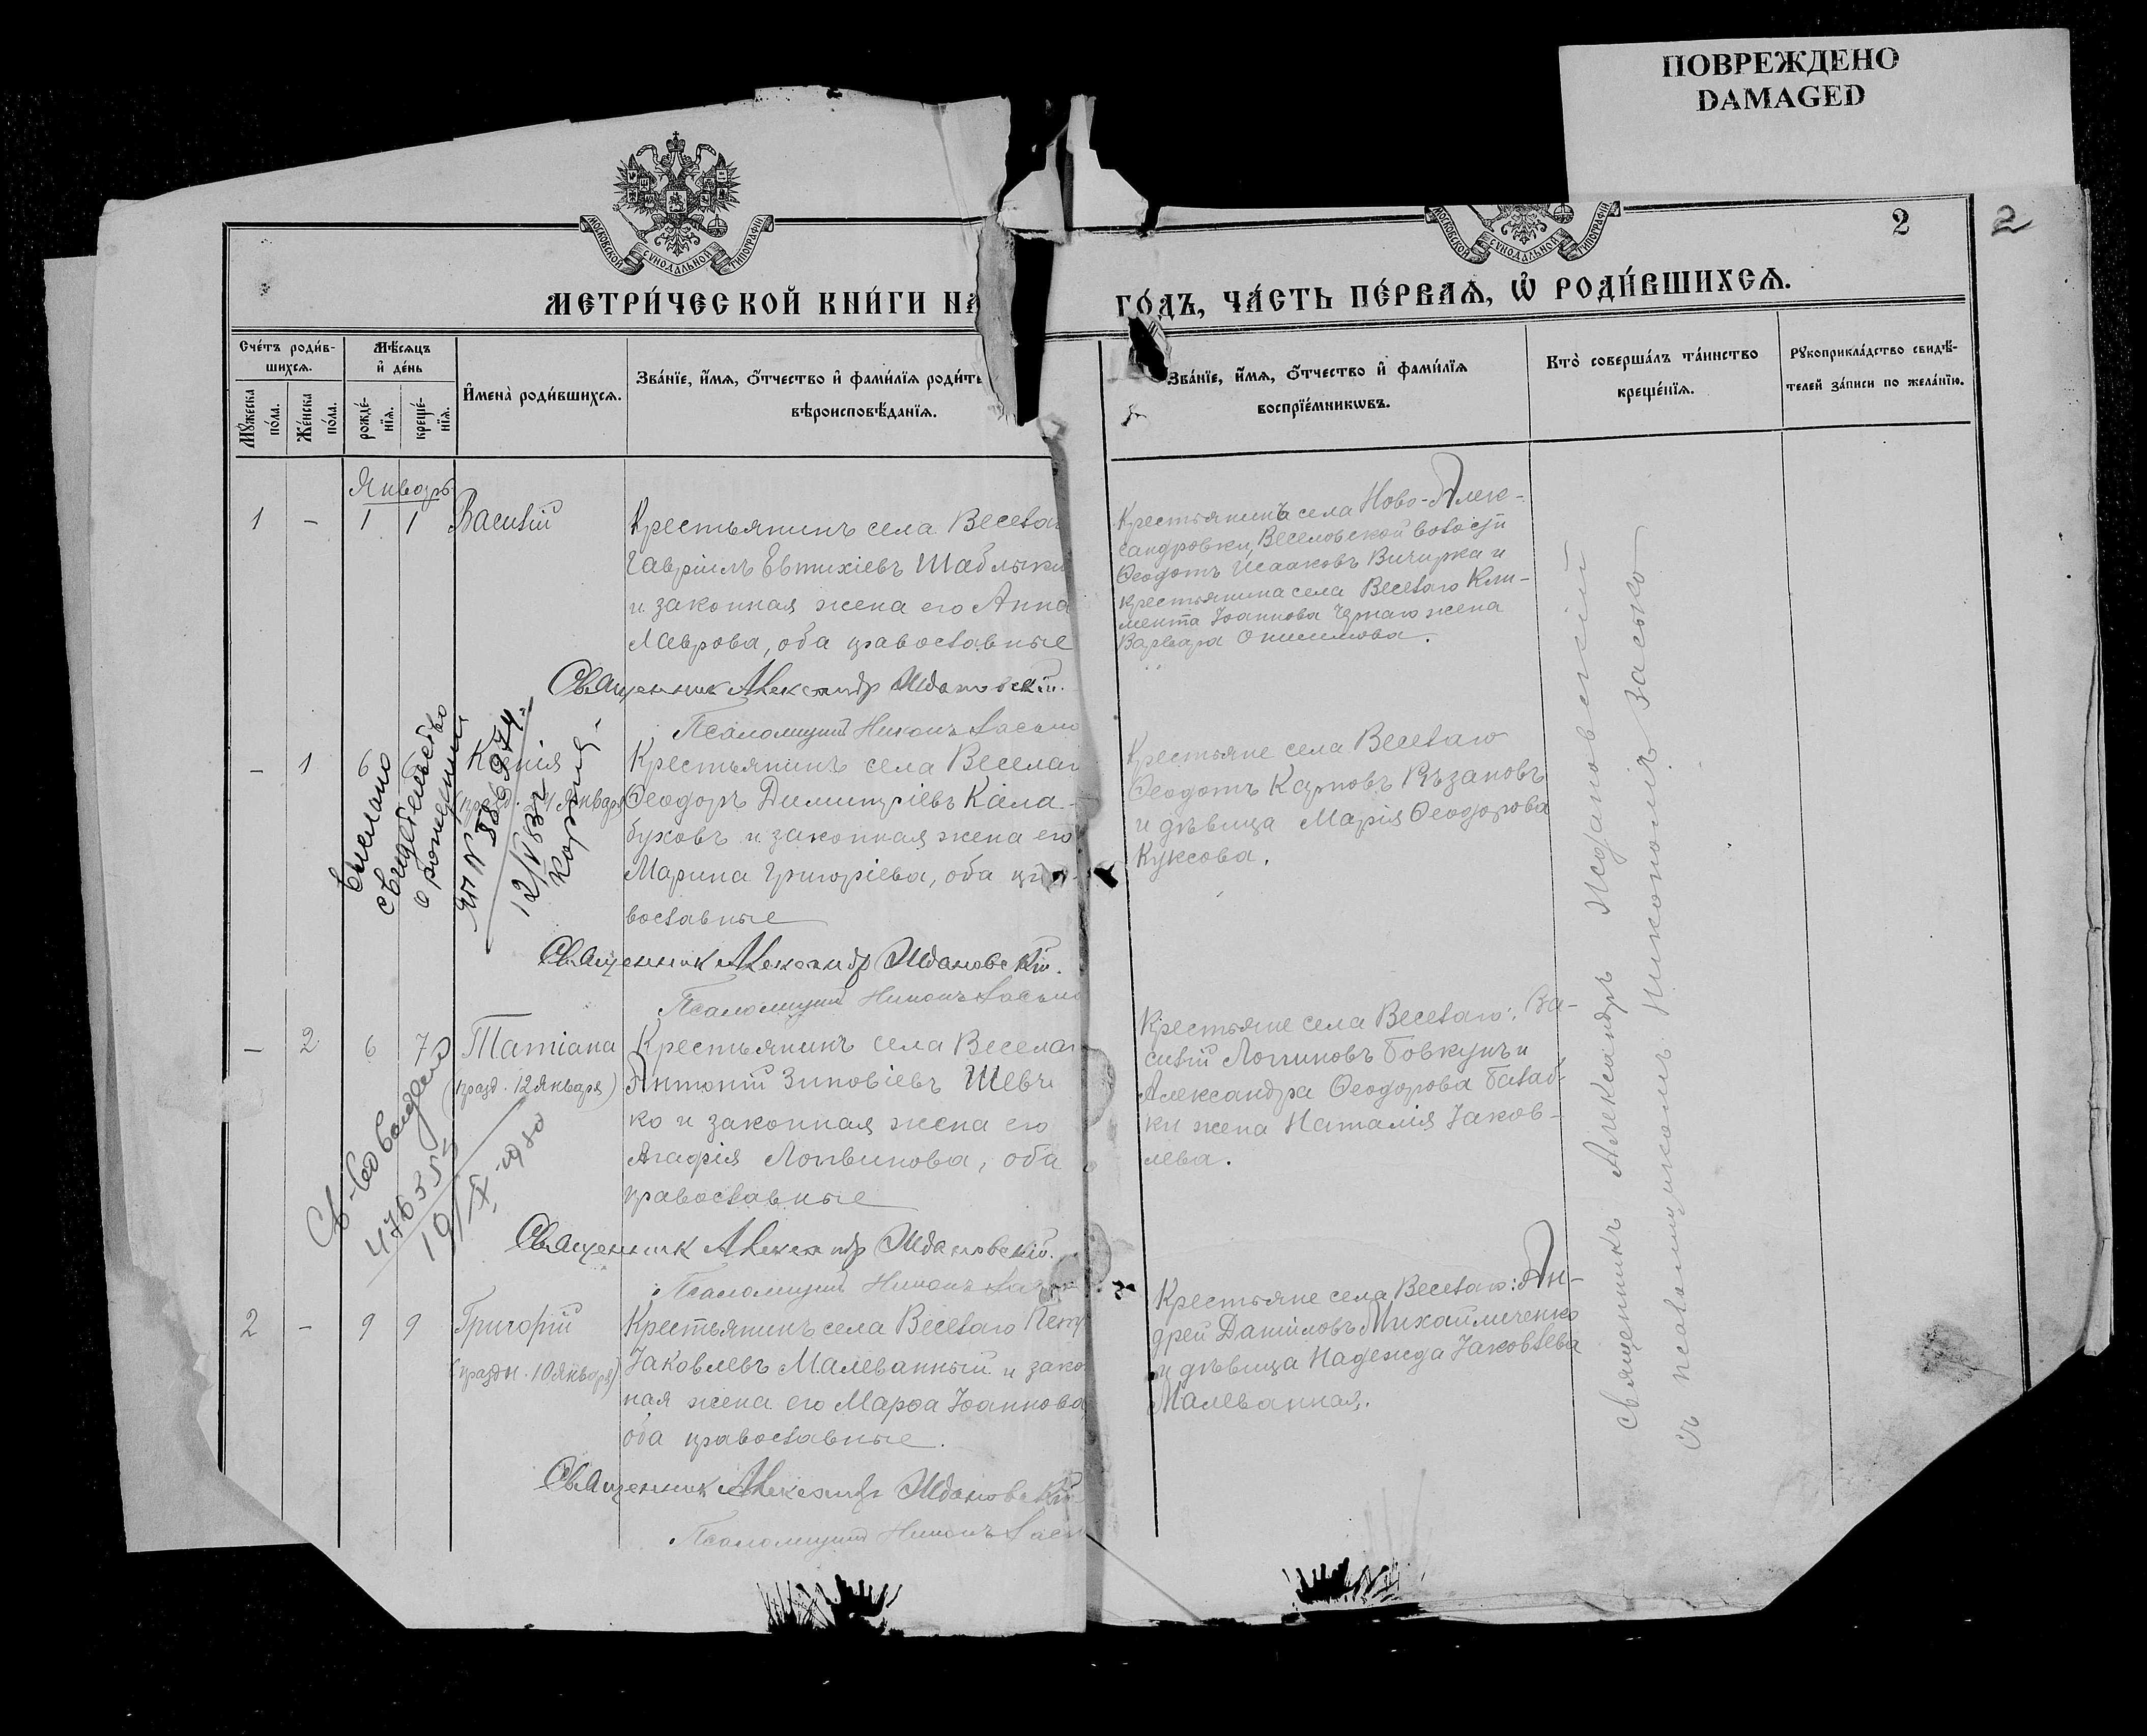 ПОВРЕЖДЕНО
DAMAGED
МОСКОВСКОЙ СѴНОДАЛЬНОЙ ТИПОГРАФІИ
МОСКОВСКОЙ СѴНОДАЛЬНОЙ ТИПОГРАФІИ
2
2
МЕТРИ́ЧЕСКОЙ КНИ́ГИ НА
ГО́ДЪ, ЧА́СТЬ ПЕ́РВАѦ, Ѡ҆ РОДИ́ВШИХСѦ.
Сче́тъ роди́в-
шихсѧ.
Мꙋ́жеска
по́ла.
Же́нска
по́ла.
Мѣ́сѧцъ
и҆ де́нь
рожде́-
нїѧ.
креще́-
нїѧ.
И҆мена̀ роди́вшихсѧ.
Зва́нїе, и҆́мѧ, ѻ҆́тчество и҆ фами́лїѧ роди́т
вѣроисповѣ́данїѧ.
Зва́нїе, и҆́мѧ, ѻ҆́тчество и҆ фами́лїѧ
воспрїе́мникѡвъ.
Кто̀ соверша́лъ та́инство
креще́нїѧ.
Рꙋкоприкла́дство свидѣ́-
телей за́писи по жела́нїю.
Январь
1 - 1 1 Василій
Крестьянинъ села Веселаг
Гавріилъ Евтихіевъ Шаблыки
и законная жена его Анна
Лаврова, оба православные
Священник Александр Ждановскій.
Псаломщикъ Никонъ Засько
Крестьянинъ села Ново-Алек-
сандровки, Веселовской волости
Ѳеодотъ Исааковъ Вичирка и
крестьянина села Веселаго Кли-
мента Іоаннова Чернаго жена
Варвара Онисимова.
- 1 6 Ксенія
празд. 24 Января
Крестьянинъ села Веселаг
Ѳеодоръ Димитріевъ Кала-
буховъ и законная жена его
Марина Григоріева, оба пра-
вославные
Священник Александр Ждановскій.
Псаломщикъ Никонъ Засько
Крестьяне села Веселаго
Ѳеодотъ Карповъ Рѣзановъ
и дѣвица Марія Ѳеодорова
Куксова.
Выслано
свидетельство
о рождении
12/V 83г
- 2 6 7 Татіана
(празд. 12 Января)
Крестьянинъ села Веселаг
Антоній Зиновіевъ Шевч
ко и законная жена его
Агафія Логвинова, оба
православные
Священник Александр Ждановскій.
Псаломщикъ Никонъ За
Крестьяне села Веселаго: Ва-
силій Логиновъ Бовкунъ и
Александра Ѳеодорова Балаб-
ки жена Наталія Іаков-
лева.
Св-во выдано
476355
19/X-1980
2 - 9 9 Григорій
(празд. 10 Января)
Крестьянинъ села Веселаго Петр
Іаковлевъ Малеванный и зако
ная жена его Марѳа Іоаннова
оба православные.
Священник Александр Ждановскій
Псаломщикъ Никонъ Заськ
Крестьяне села Веселаго: Ан-
дрей Даніиловъ Михайличенко
и дѣвица Надежда Іаковлева
Малеванная.
Священникъ Александръ Ждановскій
съ псаломщикомъ Никономъ Засько